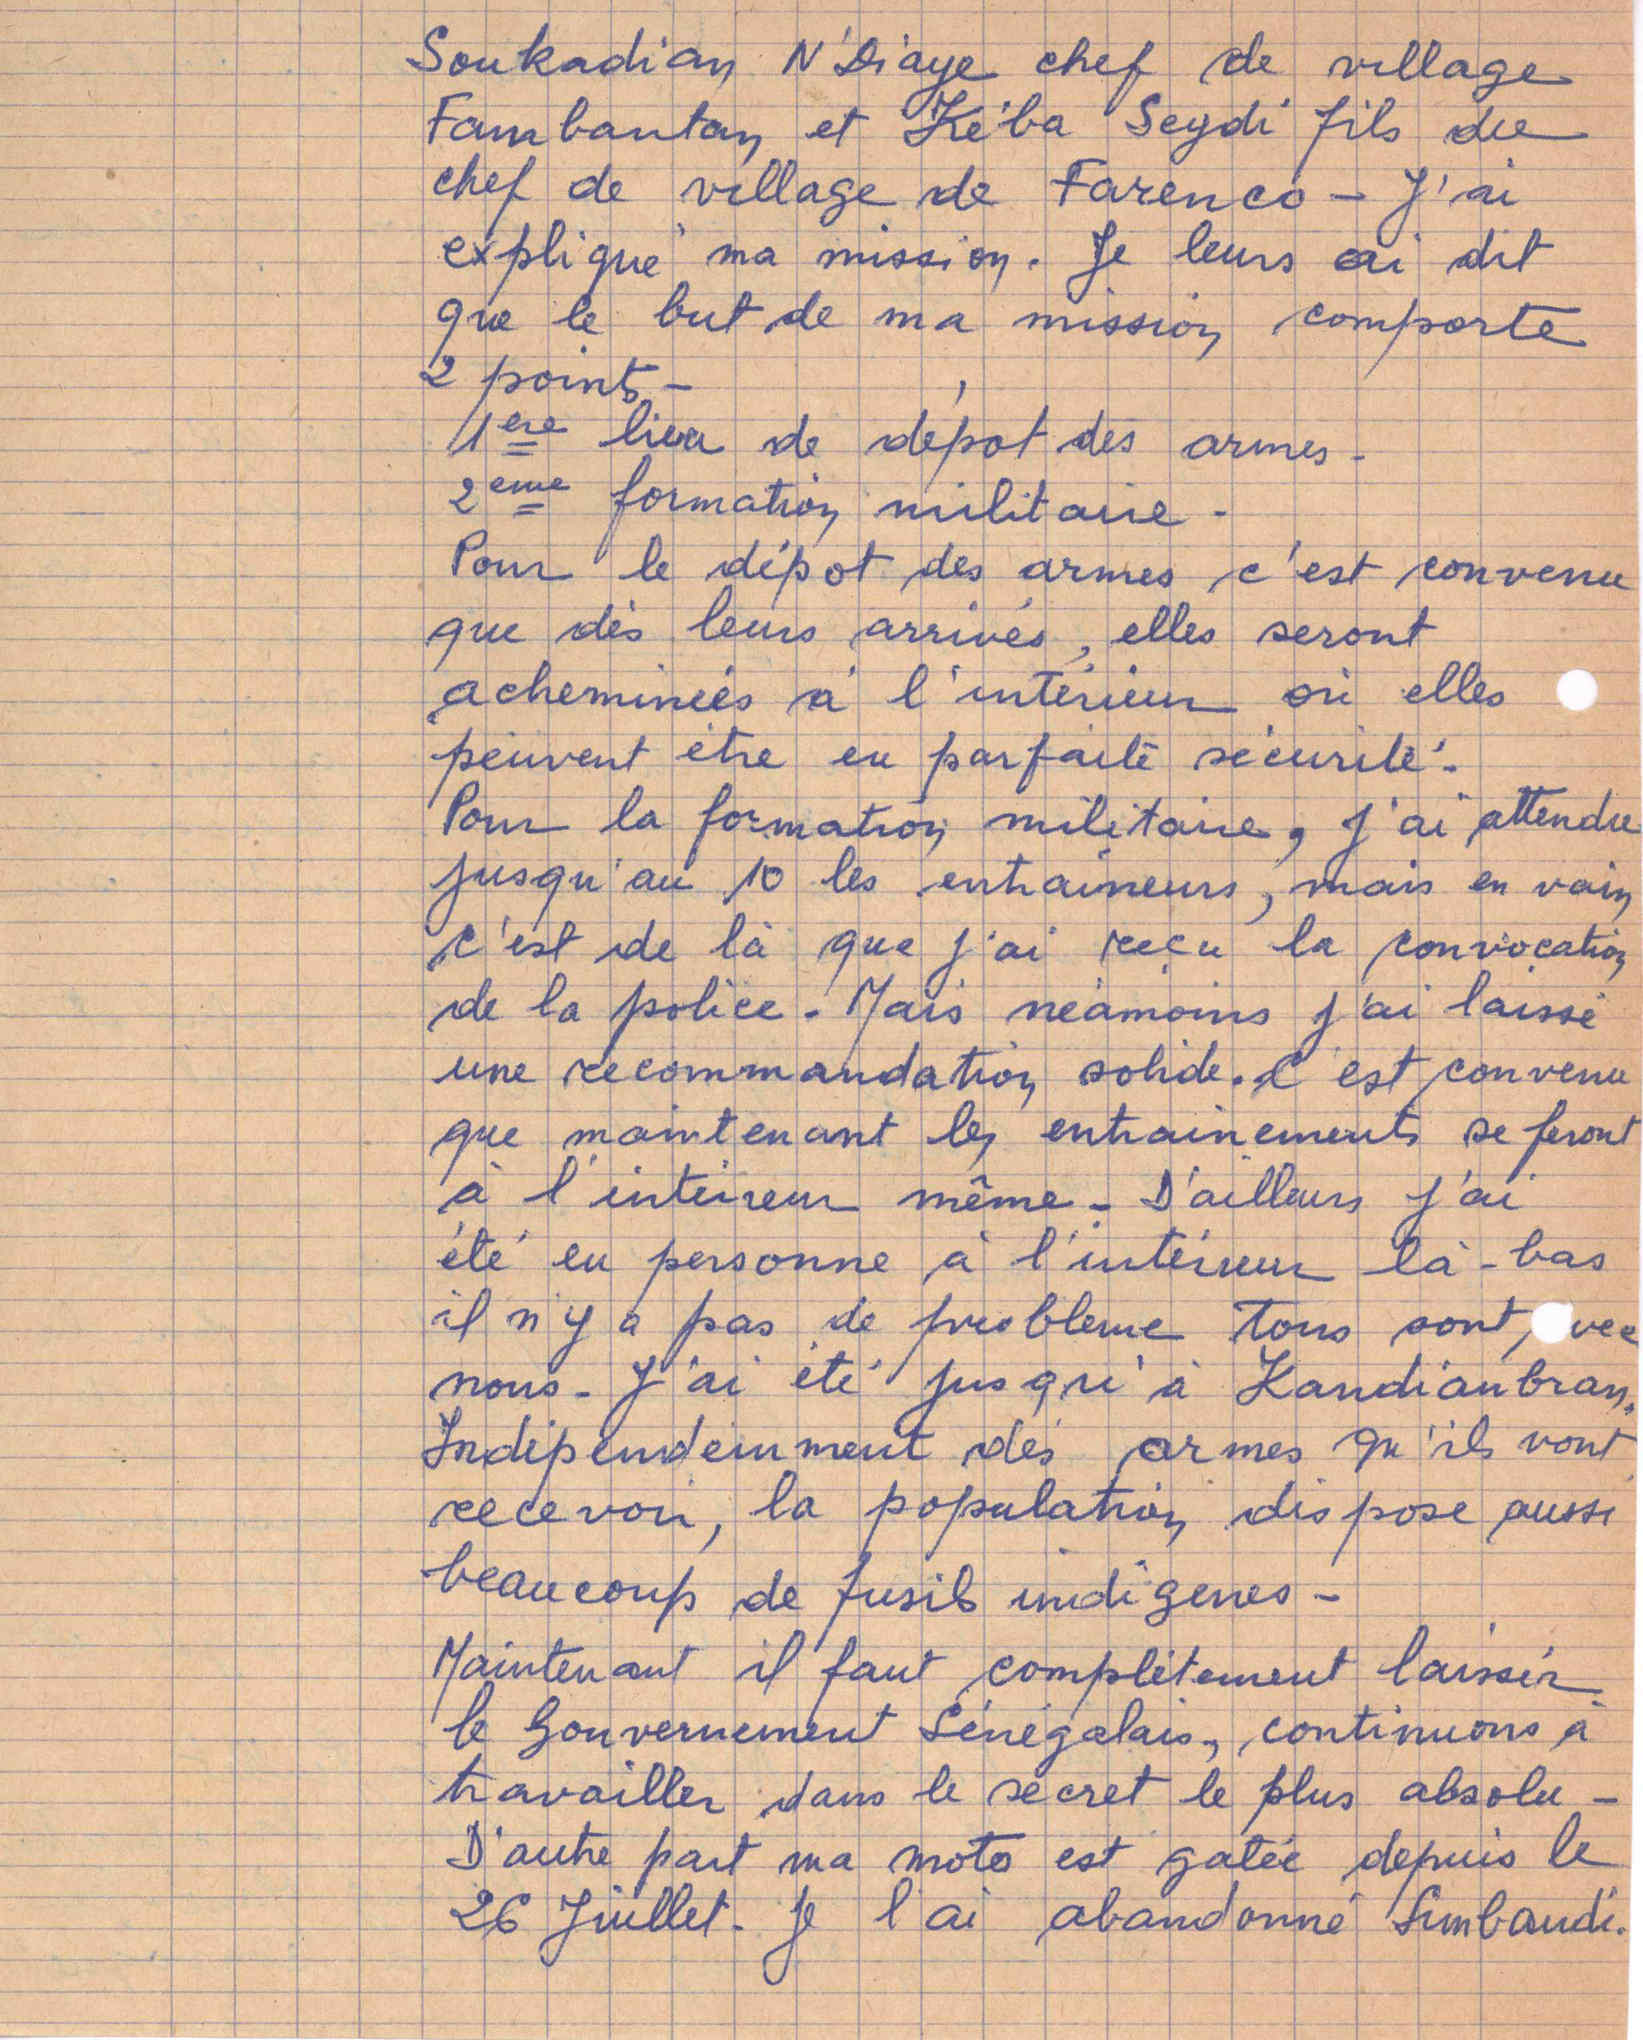 Soukadian N'Diaye chef de village
Fambantan et Kéba Seydi fils du
chef de village de Farenco - J'ai
expliqué ma mission. Je leurs ai dit
que le but de ma mission comporte
2 points -
1ère lieu de dépôt des armes -
2ème formation militaire -
Pour le dépot des armes c'est convenu
que dès leurs arrivés, elles seront
acheminées à l'intérieur où elles
peuvent être en parfaite sécurité -
Pour la formation militaire, j'ai attendu
jusqu'au 10 les entraineurs, mais en vain
c'est de là que j'ai reçu la convocation
de la police. Mais néamoins j'ai laissé
une recommandation solide. C'est convenu
que maintenant les entrainements se feront
à l'intérieur même - D'ailleurs j'ai
été en personne à l'intérieur là-bas
il n'y a pas de problème tous sont vec
nous - J'ai été jusqu'à Kandianbran.
Indépendemment des armes qu'ils vont
recevoir, la population dispose aussi
beaucoup de fusils indigenes -
Maintenant il faut complètement laisser
le Gouvernement Sénégalais, continuons à
travailler dans le secret le plus absolu -
D'autre part ma moto est gatée depuis le
26 Juillet - Je l'ai abandonné Simbandi.